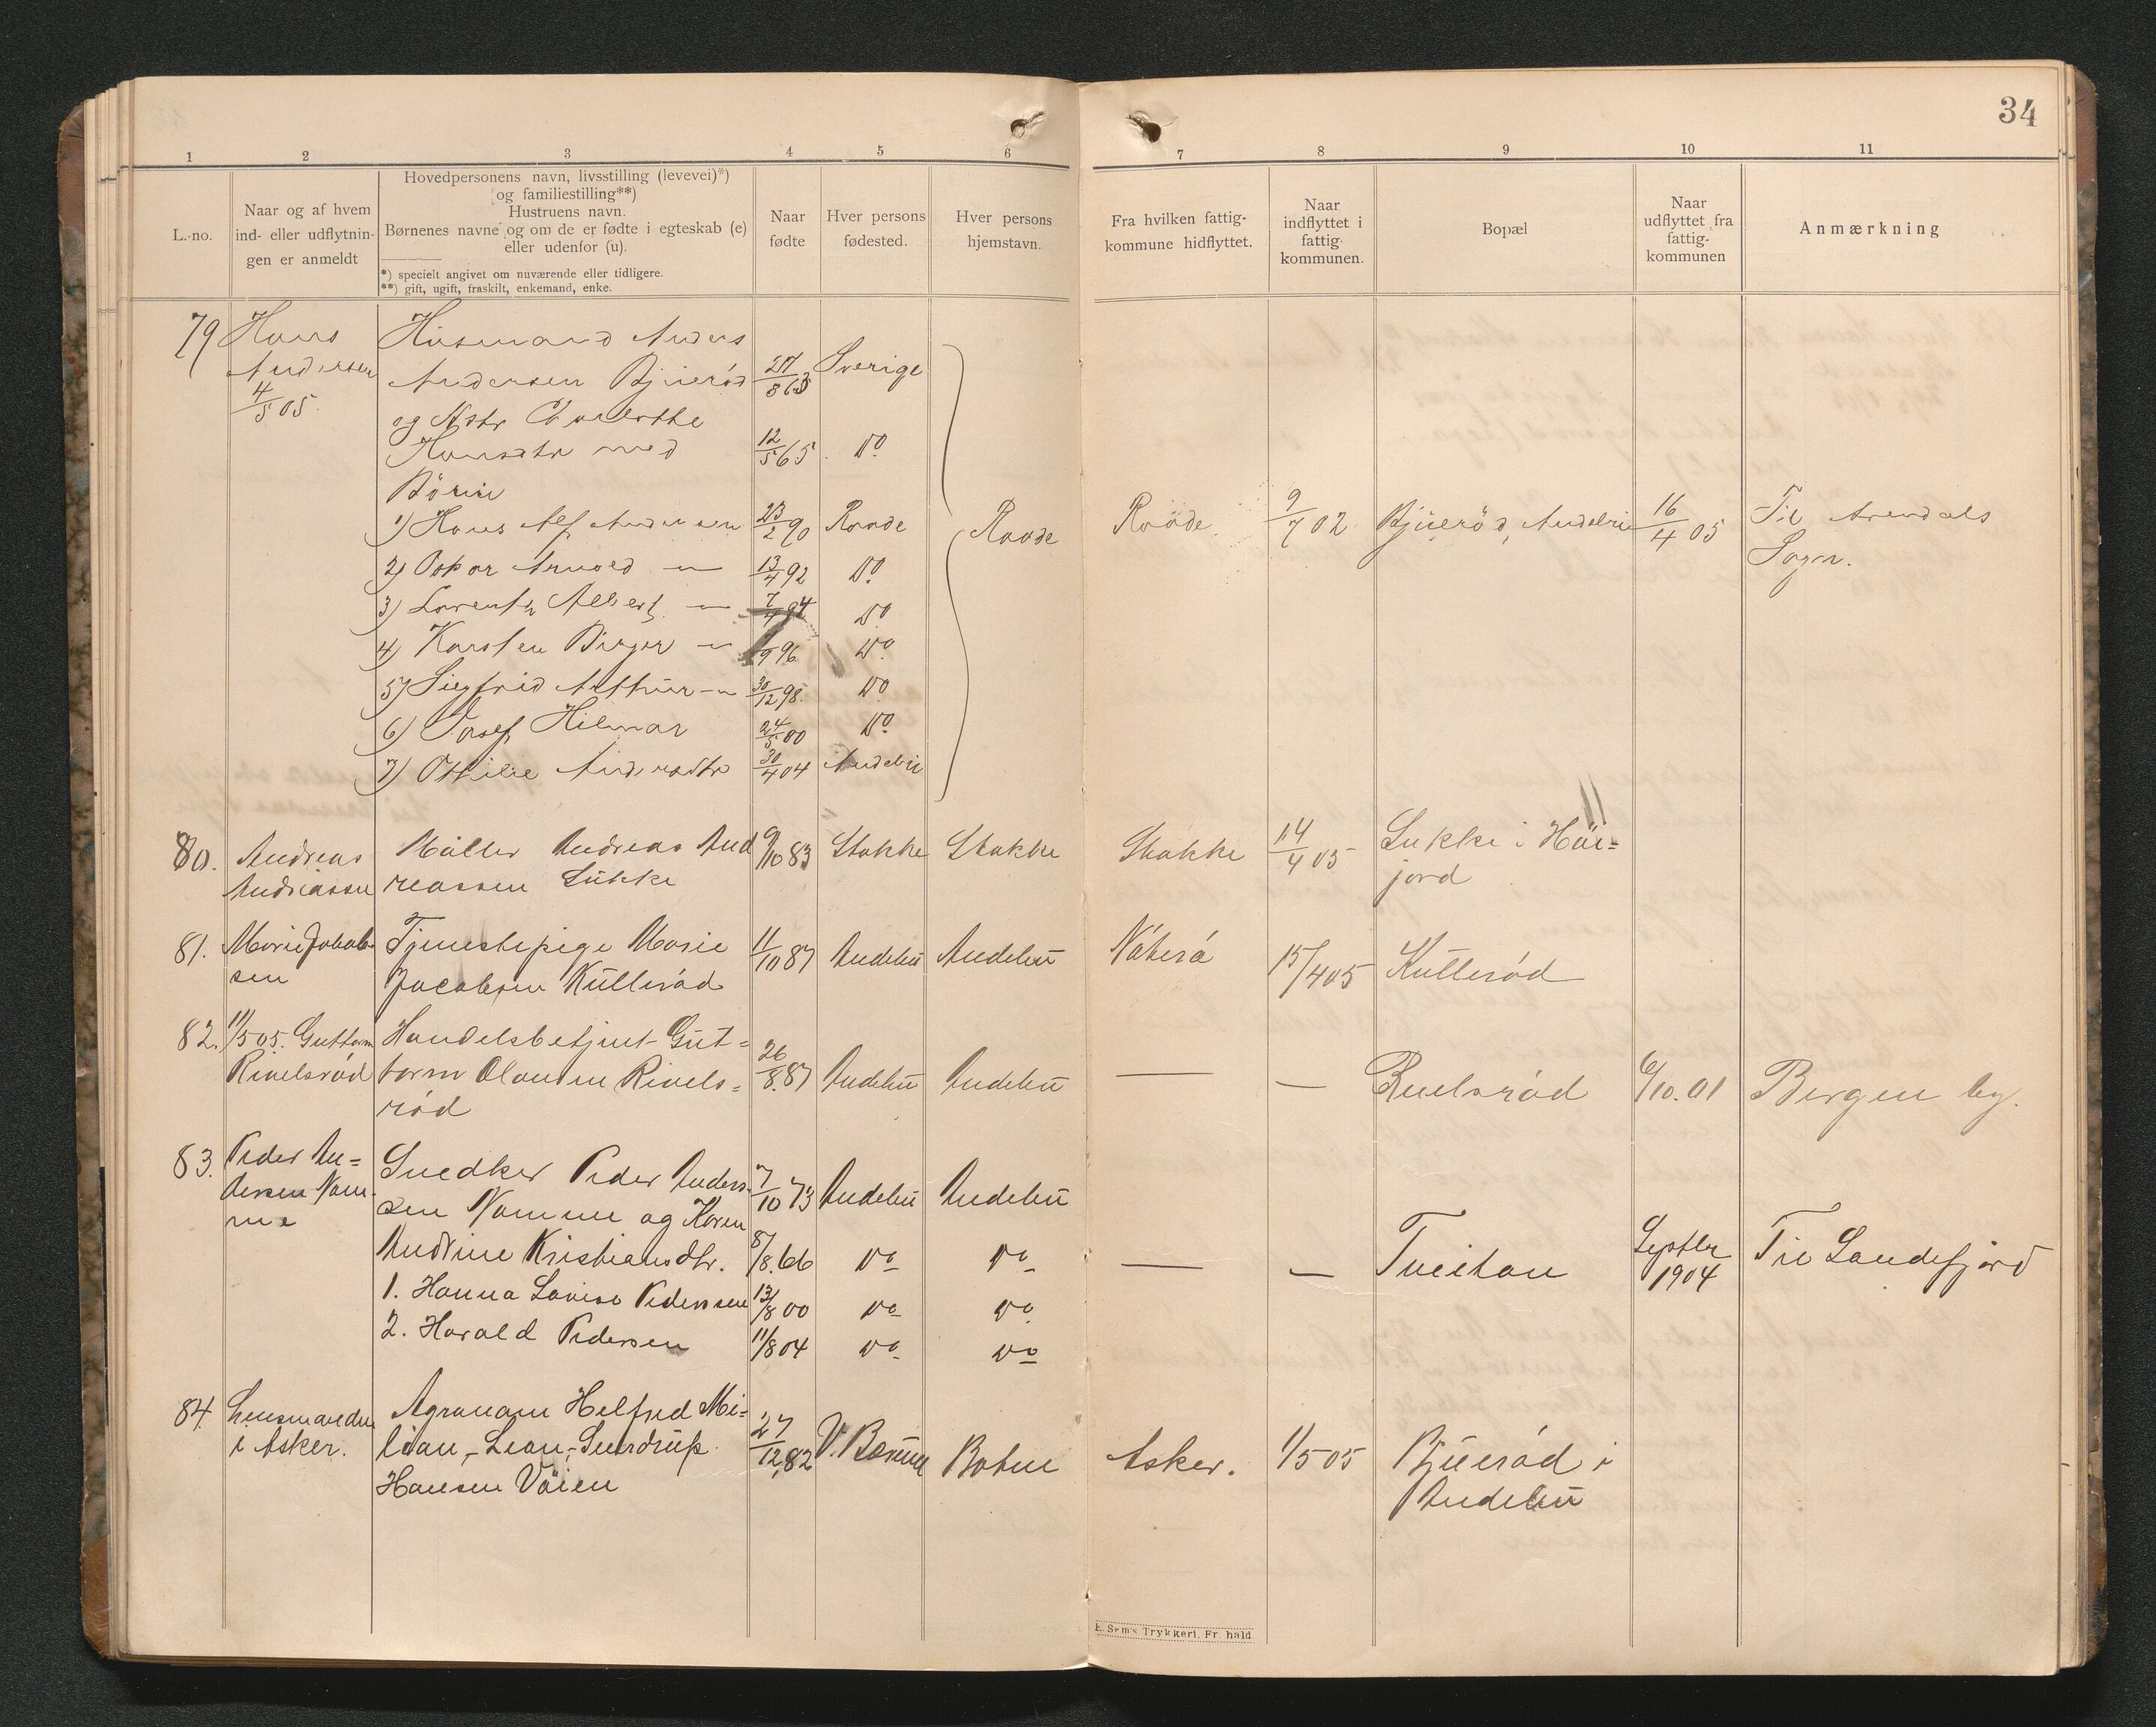 34
1 2 3 4 5 6 7 8 9 10 11
L.-no.
Naar og af hvem
ind- eller udflytnin-
gen er anmeldt
Hovedpersonens navn, livsstilling (levevei)*)
og familiestilling**)
Hustruens navn.
Børnenes navne og om de er fødte i egteskab (e)
eller udenfor (u).
*) specielt angivet om nuværende eller tidligere.
**) gift, ugift, fraskilt, enkemand, enke.
Naar
fødte
Hver persons
fødested.
Hver persons
hjemstavn.
Fra hvilken fattig-
kommune hidflyttet.
Naar
indflyttet i
fattig-
kommunen.
Bopæl
Naar
udflyttet fra
fattig-
kommunen
Anmærkning
79 Hans
Andersen
4/5 05.
Husmand Anders
Andersen Bjuerød Sverige
og Hstr
Hansdtr med 12/5 65. Do
Börn
1) Hans Alf Andersen 23/2 90 Raade Raade Raade 9/7 02 Bjuerød, Andebu 16/4 05 Til Arendals
Sogn.
2) Oskar Arnold — 13/4 92 Do
3) Lorentz Albert — 7/4 94 Do
4) Karsten Birger — 96 Do
5) Siegfrid Arthur — 30/12 98. Do
6) Josef Hilmar 24/5 00 Do
7) Othilie Andersdtr 30/4 04 Andebu
80. Andreas Möller Andreas And 9/10 83 Stokke Stokke Stokke 14/4 05 Lukke i Höi=
Andreassen reassen Lukke jord
81. Marie Jakob- Tjenestepige Marie 11/10 87 Andebu Andebu Nøterø 15/4 05 Kullerød
sen Jacobsen Kullerød
82. 11/5 05. Guttorm Handelsbetjent Gut=
Rivelsrød torm Olausen Rivels= 26/8. 87 Andebu Andebu — — Ruelsrød 6/10. 01 Bergen by.
rød
83. Peder An= Snedker Peder Anders- 7/10 73 Andebu Andebu
dersen Nom- sen Nomme og Karen
me
Andrine Kristiansdtr. 8/8. 66 Do Do — — Tveitan Septbr
1904 Til Sandefjord
1. Hanna Lovise Pederssen 13/8 00 Do Do
2. Harald Pedersen 11/8 04 Do Do
84. Lensmanden Agronom Helfred Mi=
i Asker. lian, Lean, Surdrup. 27/12 82 V. Bærum Botne Asker. 1/5 05 Bjuerød i
Hansen Vöien Andebu
E. Sem's Trykkeri, Fr.hald